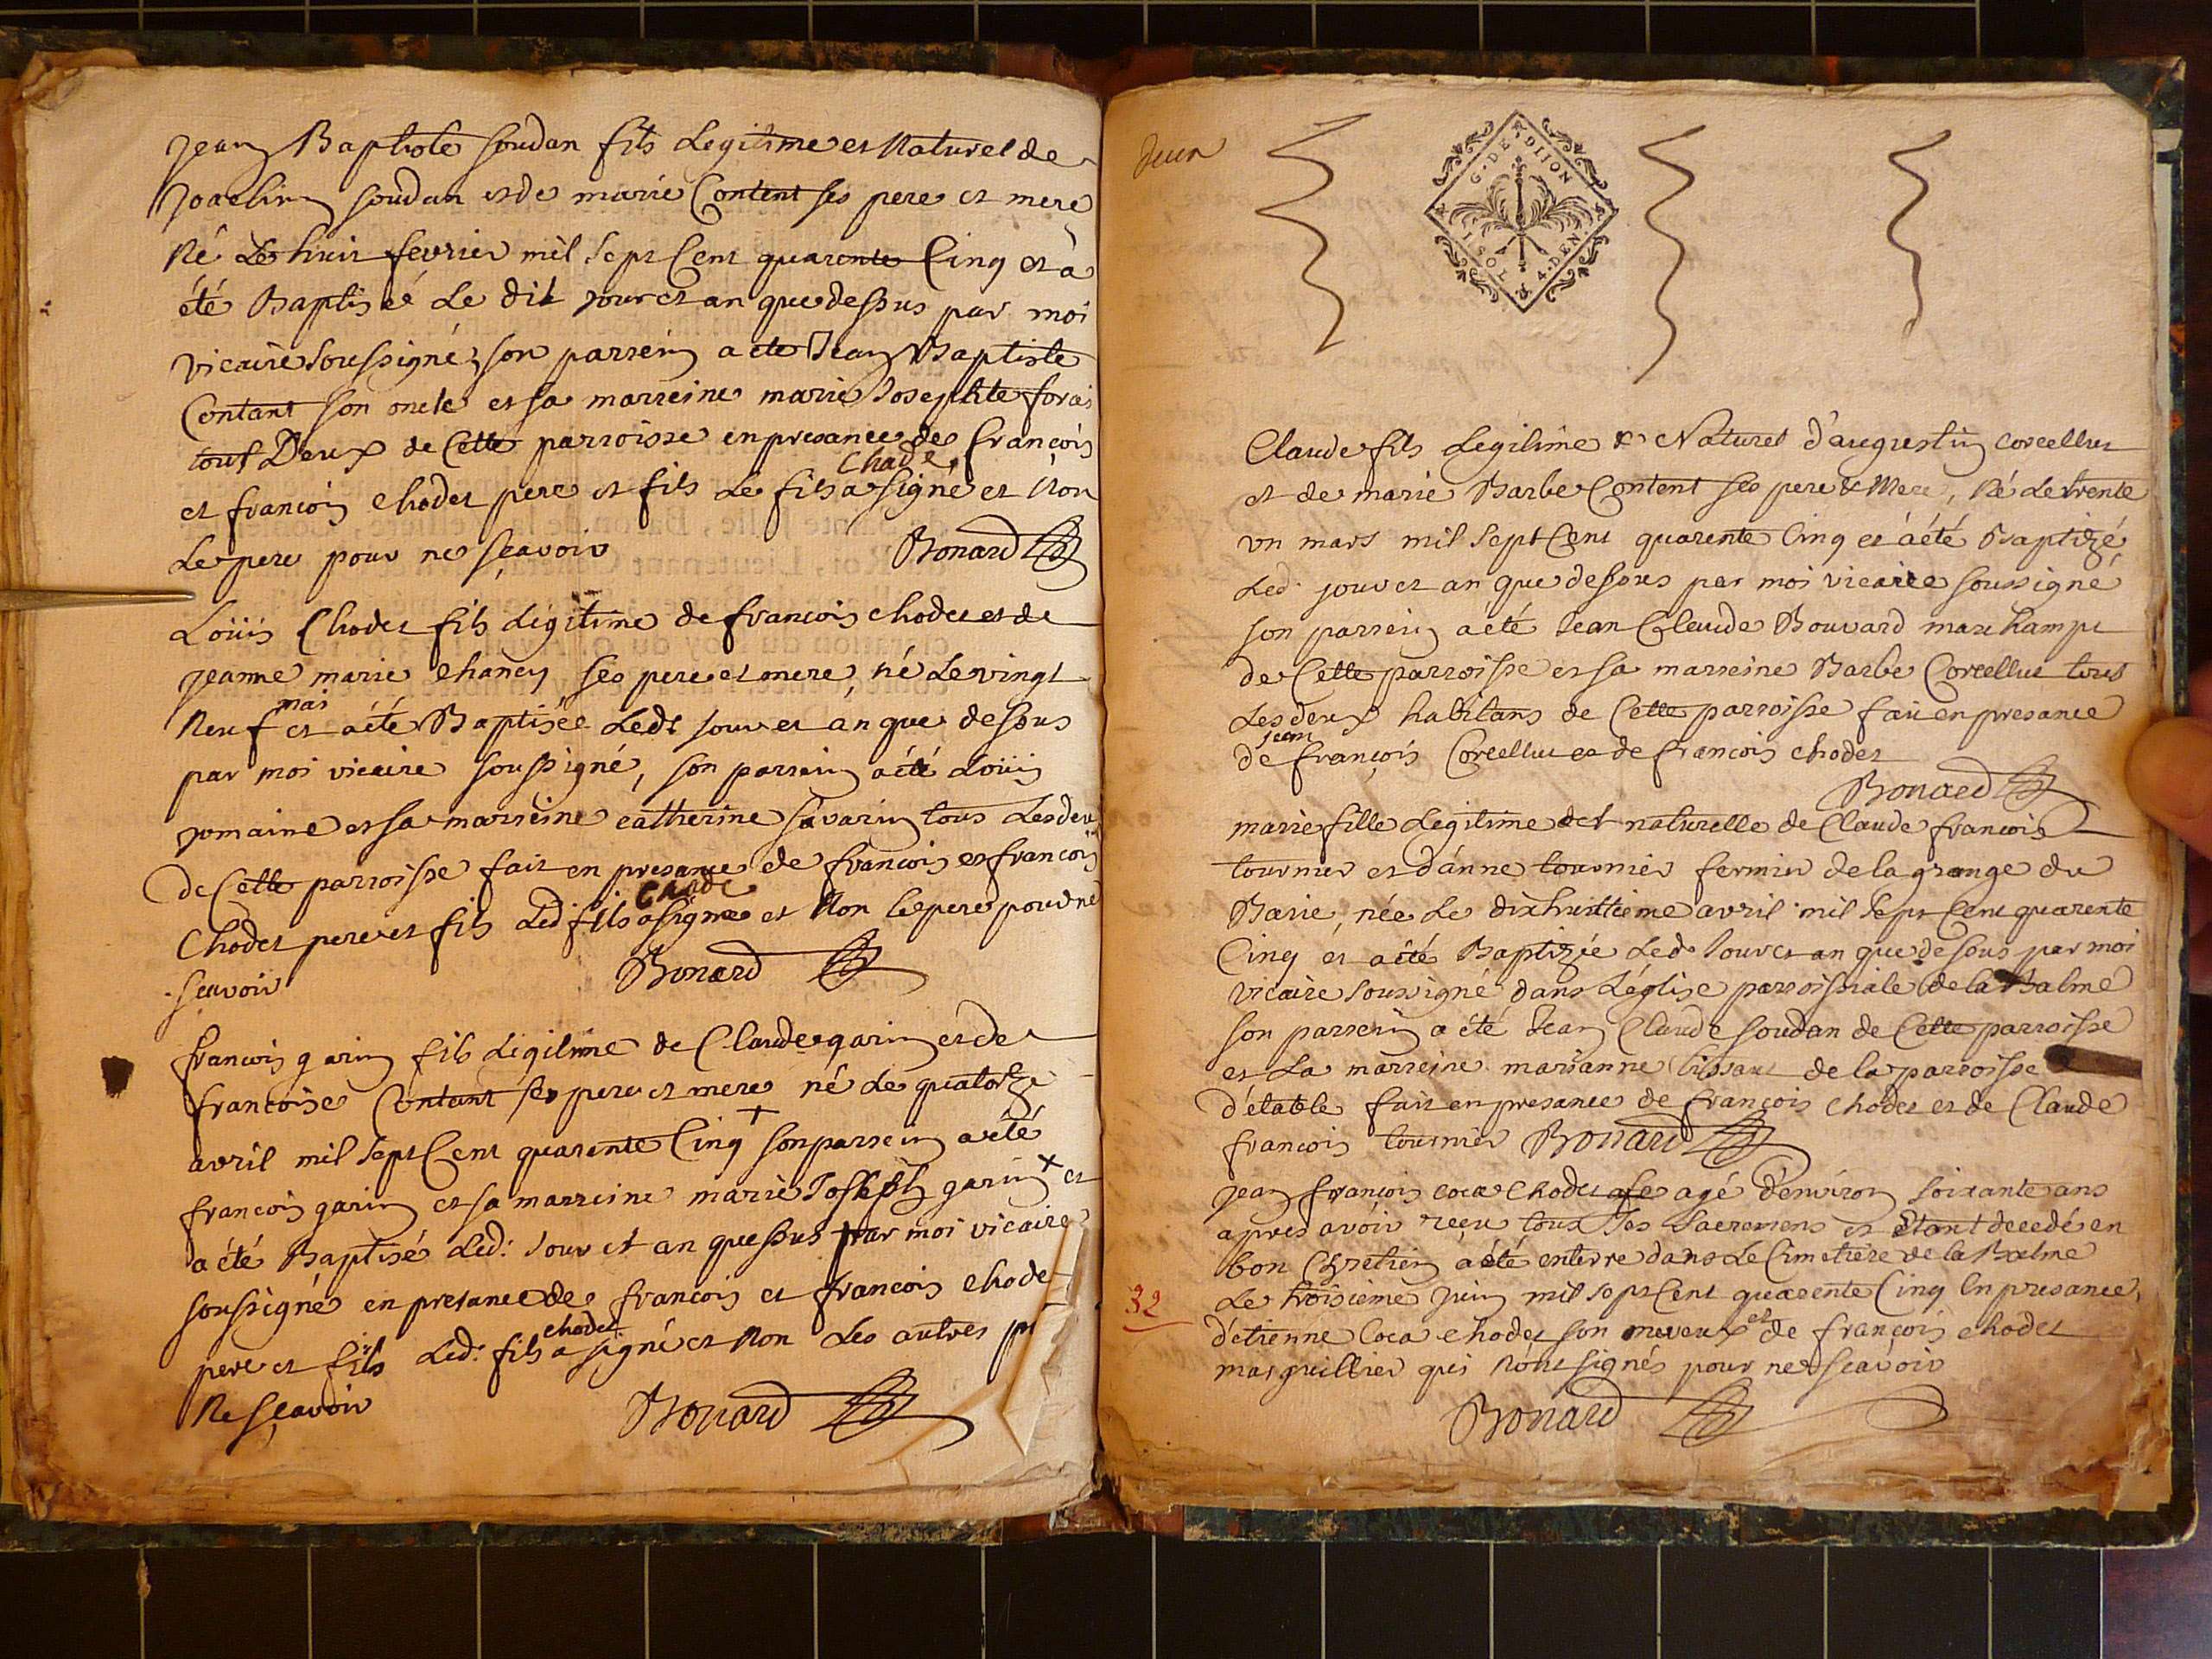 jean Baptiste soudan fils Legitime et Naturel de
soudan et de marie Content ses pere et mere
Né Le huit fevrier mil sept Cent quarente Cinq et à
été Baptiseé Le dit jour et an que dessus par moi
vicaire soussigné, son parrein a ete Jean Baptiste
Contant son oncle et sa marreine marie Josephte
tout Deux de Cette parroisse en presance de François
et françois chodet pere et fils Le fils a signé et Non
Chode
Le pere pour ne sçavoir Bonard
Loüis Chodet fils Légitime de françois chodet et de
jeanne marie chaney ses pere et mere, né Le vingt
mai
Neuf et a été Baptisée Ledt jour et an que dessus
par moi vicaire soussigné, son parrein a été Loüis
romaine et sa marreine catherine savarin tous Les deux
de Cette parroisse fait en presance de françois et françois
Chode
Chodet pere et fils Led fils a signe et Non le pere pour ne
scavoir Bonard
françois garin fils Légitime de Claude garin et de
francoise Contant ses pere et mere né Le quatorze
avril mil sept Cent quarente Cinq + son parrein a été
françois garin et sa marreine marie Joseph garin + et
a été Baptisé Led: Jour et an que sus par moi vicaire
soussigné en presance de françois et françois chode
chodet
pere et fils Led: fils a signé et Non Les autres
Ne sçavoir Bonard
G. DE DIJON
I SOL 4. DEN
Claude fils Legitime & Naturel d'augustin corcellut
et de marie Barbe Content ses pere & Mere, Né Le trente
un mars mil sept Cent quarente Cinq et à été Baptizé
Led. jour et an que dessus par moi vicaire soussigné
son parrein a été Jean Claude Bouvard
de Cette parroisse et sa marreine Barbe Corcellut tous
Les deux habitans de Cette parroisse fait en presance
jean
de françois Corcellut et de françois chodet
Bonard
marie fille Legitime et naturelle de Claude françois
tournier et d'anne tournier fermier de la grange du
née Le dixhuittieme avril mil sept Cent quarente
Cinq et a été Baptizée Led. Jour et an que dessus par moi
vicaire soussigné dans L'église parroissiale de la Balme
son parrein a été Jean Claude soudan de Cette parroisse
et La marreine marianne de la parroisse
d'étable fait en presance de françois chodet et de Claude
françois tournier Bonard
jean françois coca chodet agé d'environ soixante ans
apres avoir reçu tous Les sacremens et étant decedé en
bon Chretien a été enterre dans Le Cimetiere de la Balme
32
Le troisieme juin mil sept Cent quarente Cinq En presance
d'etienne Coca chodet son neveux et de françois chodet
marguillier qui n'ont signés pour ne sçavoir
Bonard